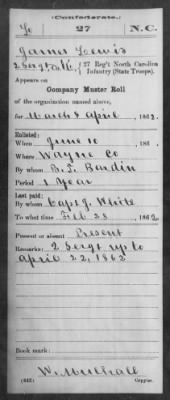 (Confederate.)
27 N.C.
James Lewis
2 Sergt Co. K, 27 Reg't North Carolina
Infantry (State Troops).
Appears on
Company Muster Roll
of the organization named above,
for March & April, 1862.
Enlisted:
When June 10, 186
Where Wayne Co
By whom B. T. Bardin
Period 1 Year
Last paid:
By whom Capt. J. White
To what time Feb 28, 1862.
Present or absent Present
Remarks: 2 Sergt up to
April 22, 1862
Book mark:
W. Mulhall
(642) Copyist.